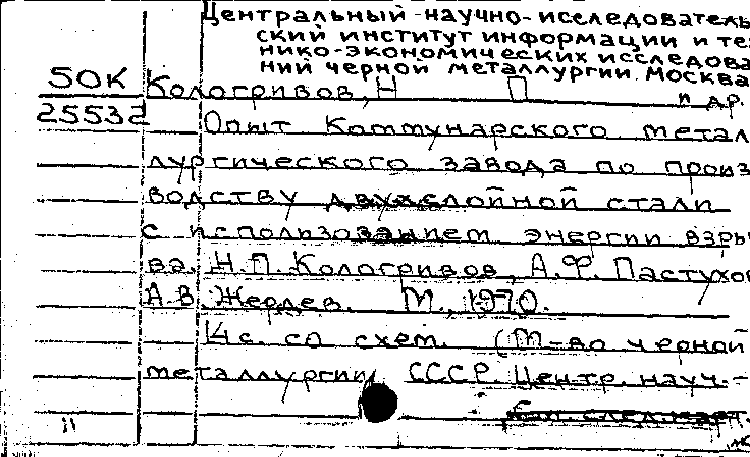 Центральный научно-исследователь
ский институт информации и те
нико-экономических исследова
ний черной металлургии. Москва
50К Кологривов, Н П и др.
25532 Опыт Коммунарского метал
лургического завода по произ
водству двухслойной стали
с использованием энергии взры
ва. Н.П. Кологривов, А.Ф. Пастухов
А.В. Жердев. М., 1970.
14 с. со схем. (М-во черной
металлургии СССР. Центр. науч.-
11